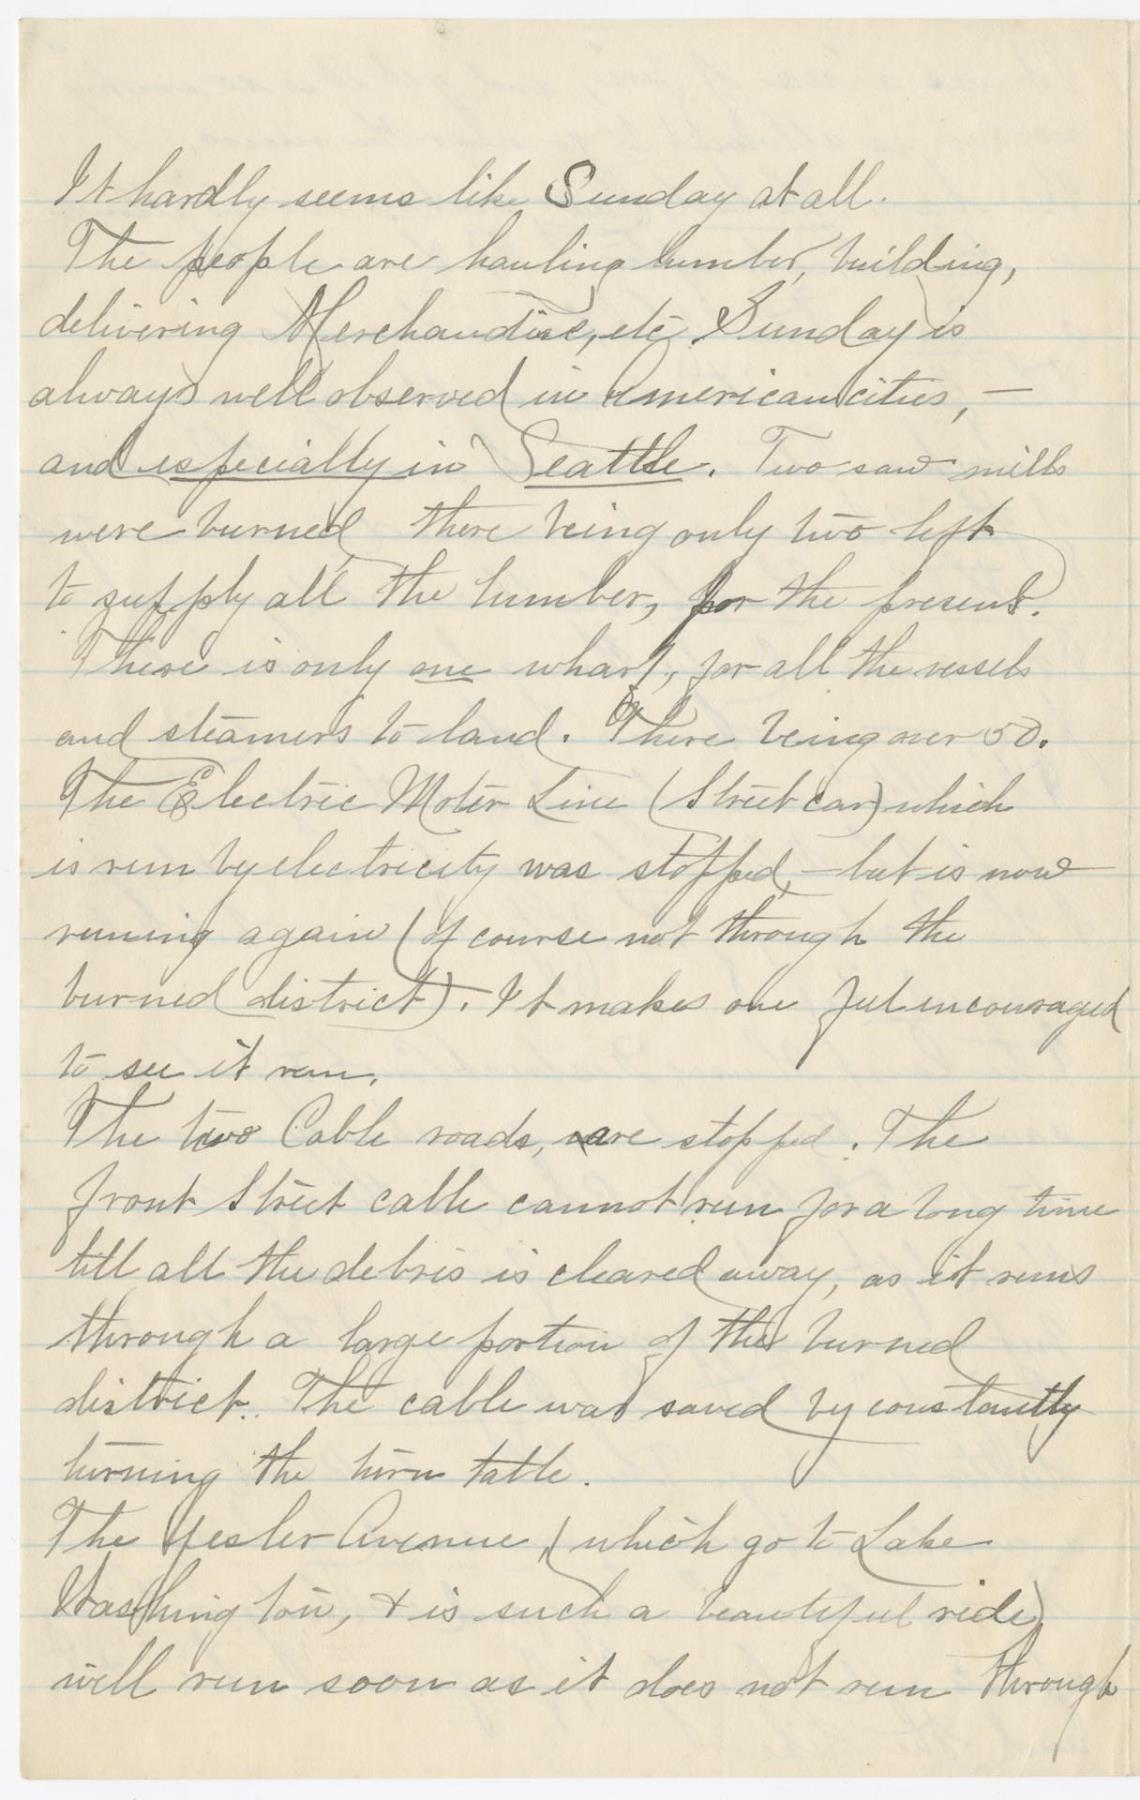 It hardly seems like Sunday at all.
The people are hauling lumber, building,
delivering Merchandise, etc. Sunday is
always well observed in American cities, —
and especially in Seattle. Two saw mills
were burned, there being only two left
to supply all the lumber, for the present.
There is only one wharf, for all the vessels
and steamers to land. There being over 50.
The Electric Motor Line (Street car) which
is run by electricity was stopped, — but is now
runing again (of course not through the
burned district). It makes one feel encouraged
to see it run.
The two Cable roads, are stopped. The
front Street cable cannot run for a long time
till all the debris is cleared away, as it runs
through a large portion of the burned
district. The cable was saved by constantly
turning the turn table.
The Yesler Avenue, (which go to Lake
Washington, & is such a beautiful ride)
will run soon as it does not run through